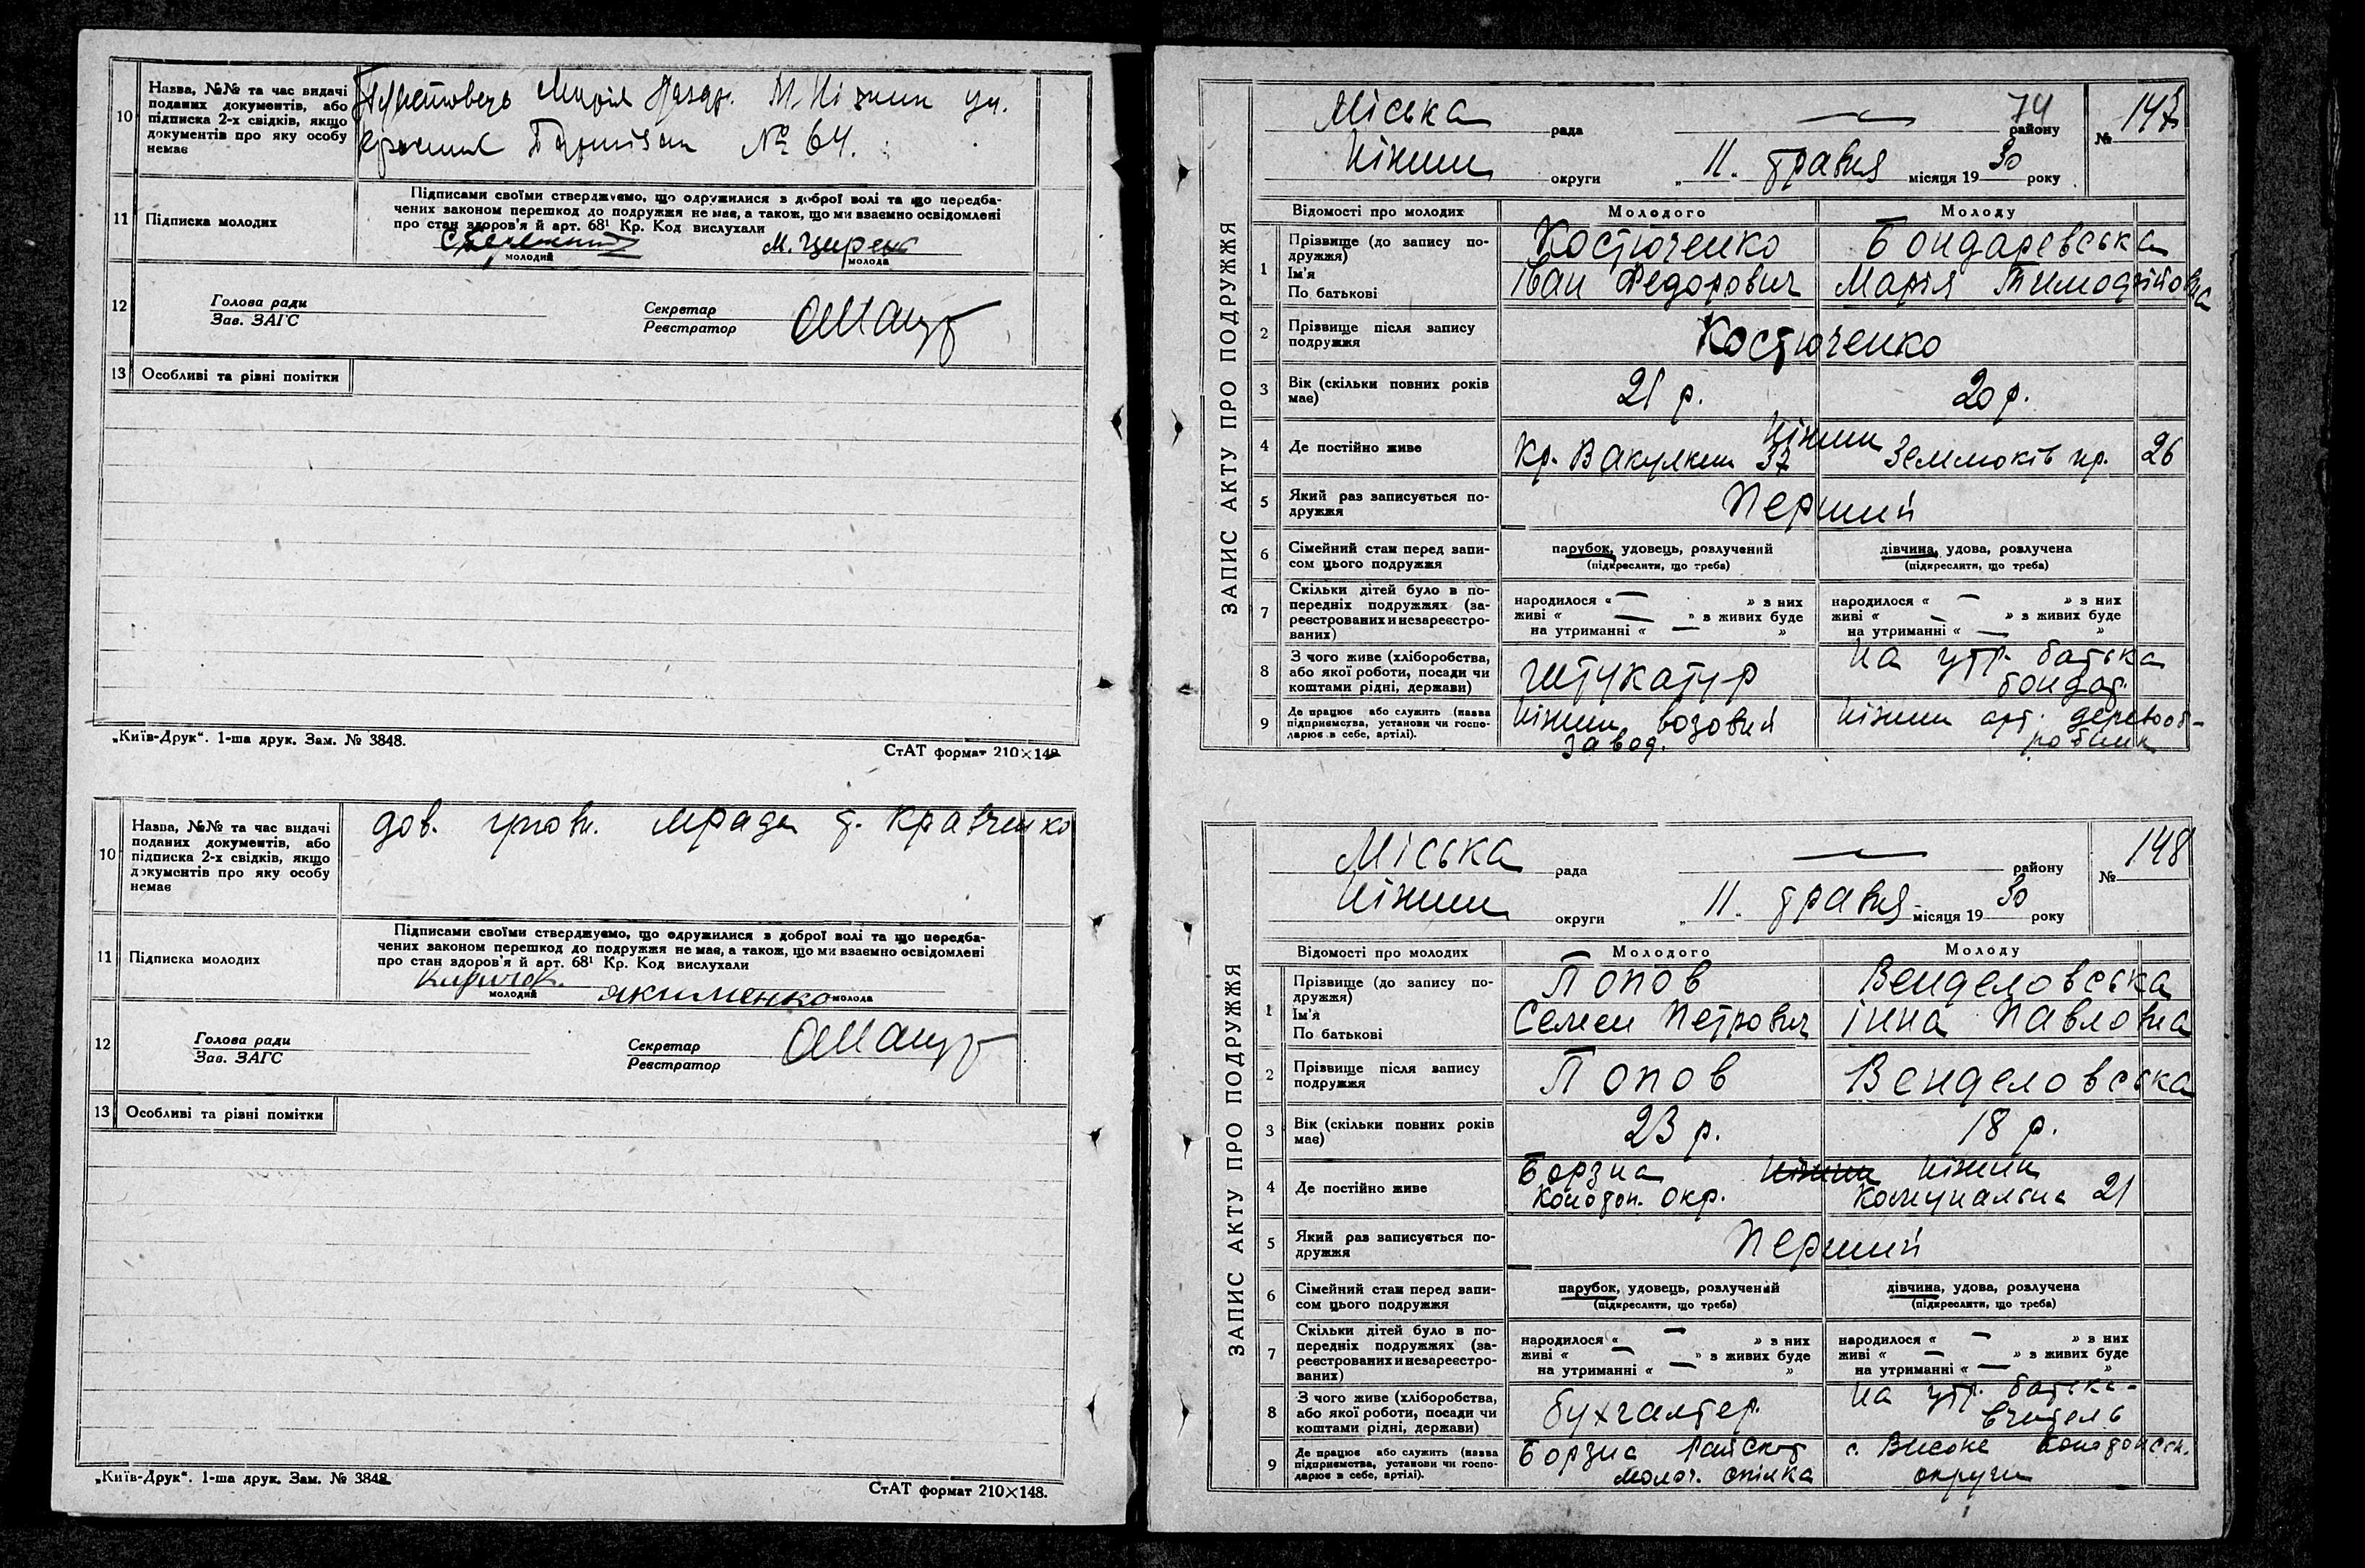 10
Назва, №№ та час видачі
поданих документів, або
підписка 2-х свідків, якщо
документів про яку особу
немає
Марія М. Ніжин ул.
№ 64.
11
Підписка молодих
Підписами своїми стверджуємо, що одружилися з доброї волі та що передба-
чених законом перешкод до подружжя не має, а також, що ми взаємно освідомлені
про стан здоров'я й арт. 68¹ Кр. Код вислухали
молодий
М. Цирень
молода
12
Голова ради
Зав. ЗАГС
Секретар
Реєстратор
13
Особливі та рівні помітки
„Київ-Друк“. 1-ша друк. Зам. № 3848.
СтАТ формат 210×148
10
Назва, №№ та час видачі
поданих документів, або
підписка 2-х свідків, якщо
документів про яку особу
немає
дов. мради т. Кравченко
11
Підписка молодих
Підписами своїми стверджуємо, що одружилися з доброї волі та що передба-
чених законом перешкод до подружжя не має, а також, що ми взаємно освідомлені
про стан здоров'я й арт. 68¹ Кр. Код вислухали
Киричок
молодий
Якименко
молода
12
Голова ради
Зав. ЗАГС
Секретар
Реєстратор
13
Особливі та рівні помітки
„Київ-Друк“. 1-ша друк. Зам. № 3848
СтАТ формат 210×148.
ЗАПИС АКТУ ПРО ПОДРУЖЖЯ
Міська рада 74 району № 147
Ніжин округи „ 11. травня місяця 19 30 року
Відомості про молодих Молодого Молоду
1
Прізвище (до запису по-
дружжя)
Ім'я
По батькові
Костюченко
Іван Федорович
Бондаревська
Марія Тимофіївна
2
Прізвище після запису
подружжя
Костюченко
3
Вік (скільки повних років
має)
21 р.
20 р.
4
Де постійно живе
Ніжин
Кр. 37
пр. 26
5
Який раз записується по-
дружжя
Перший
6
Сімейний стан перед запи-
сом цього подружжя
парубок, удовець, розлучений
(підкреслити, що треба)
дівчина, удова, розлучена
(підкреслити, що треба)
7
Скільки дітей було в по-
передніх подружжях (за-
реєстрованих и незареєстро-
ваних)
народилося « — » з них
живі « — » з живих буде
на утриманні « — »
народилося « — » з них
живі « — » з живих буде
на утриманні « — »
8
З чого живе (хліборобства,
або якої роботи, посади чи
коштами рідні, держави)
штукатур
на утр. батька
бондар.
9
Де працює або служить (назва
підприємства, установи чи госпо-
дарює в себе, артілі).
Ніжин возовий
завод.
Ніжин арт. деревооб-
робник
ЗАПИС АКТУ ПРО ПОДРУЖЖЯ
Міська рада району № 148
Ніжин округи „ 11. травня місяця 19 30 року
Відомості про молодих Молодого Молоду
1
Прізвище (до запису по-
дружжя)
Ім'я
По батькові
Попов
Семен Петрович
Венделовська
Інна Павловна
2
Прізвище після запису
подружжя
Попов
Венделовська
3
Вік (скільки повних років
має)
23 р.
18 р.
4
Де постійно живе
Борзна
Конотоп. окр.
Ніжин Ніжин
Комунальна 21
5
Який раз записується по-
дружжя
Перший
6
Сімейний стан перед запи-
сом цього подружжя
парубок, удовець, розлучений
(підкреслити, що треба)
дівчина, удова, розлучена
(підкреслити, що треба)
7
Скільки дітей було в по-
передніх подружжях (за-
реєстрованих и незареєстро-
ваних)
народилося « — » з них
живі « — » з живих буде
на утриманні « — »
народилося « — » з них
живі « — » з живих буде
на утриманні « — »
8
З чого живе (хліборобства,
або якої роботи, посади чи
коштами рідні, держави)
бухгалтер.
на утр. батька-
вчитель
9
Де працює або служить (назва
підприємства, установи чи госпо-
дарює в себе, артілі).
Борзна
молоч. спілка
с. Високе Конотопськ.
округи